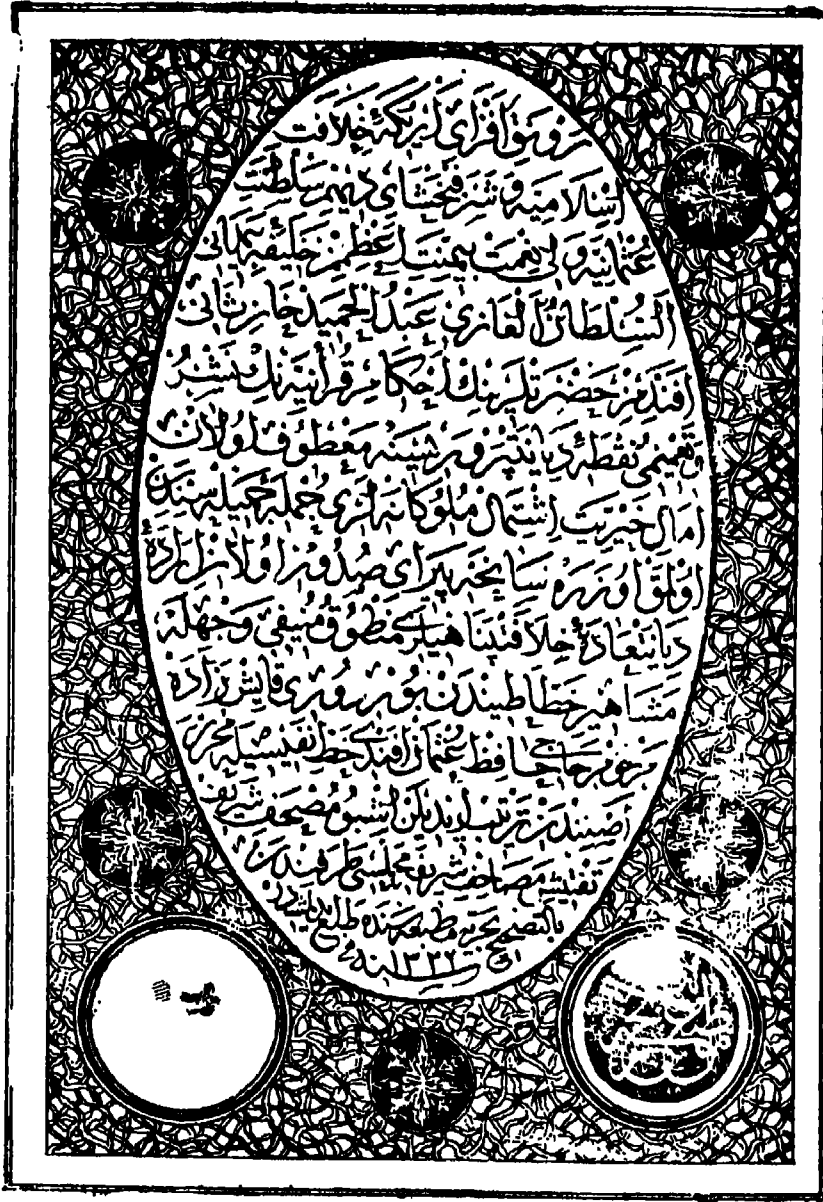 رونق افزاى اريكهٔ خلافت
اسلاميه و شرفبخشاى ديهيم سلطنت
عثمانيه ولى نعمت بيمنتمز اعظم خليفهٔ يمانى
السلطان الغازى عبد الحميد خان ثانى
افندمز حضرتلرينك احكام قرآنيه نك نشر
و تعميمى نقطهٔ ديانتپروريسنه معطوف اولان
امال خيريت اشتمال ملوكانه لرى جملهٔ جميله سندن
اولمق اوزره سانحه پيراى صدور اولان ارادهٔ
ديانتعادهٔ خلافتپناهيلرى منطوق منيفى وجهله
مشاهير خطاطيندن بوردورى قايش زاده
مرحوم حاجى حافظ عثمان افندى خط نفيسيله محرر
اصلندن ترتيب ايديلن اشبو مصحف شريف
تفتيش مصاحف شريفه مجلسى طرفندن
بالتصحيح بحريه مطبعه سنده طبع
سنه ١٣٢٢